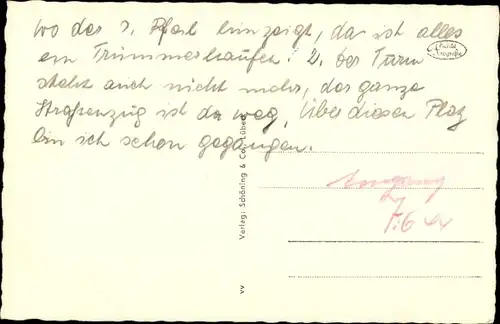 wo der 1. Pfeil hinzeigt, da ist alles
ein Trümmerhaufen! 2. der Turm
steht auch nicht mehr, der ganze
Straßenzug ist da weg, über diesen Platz
bin ich schon gegangen.
Verlag: Schöning & Co., Lübeck
7.6 44
vv